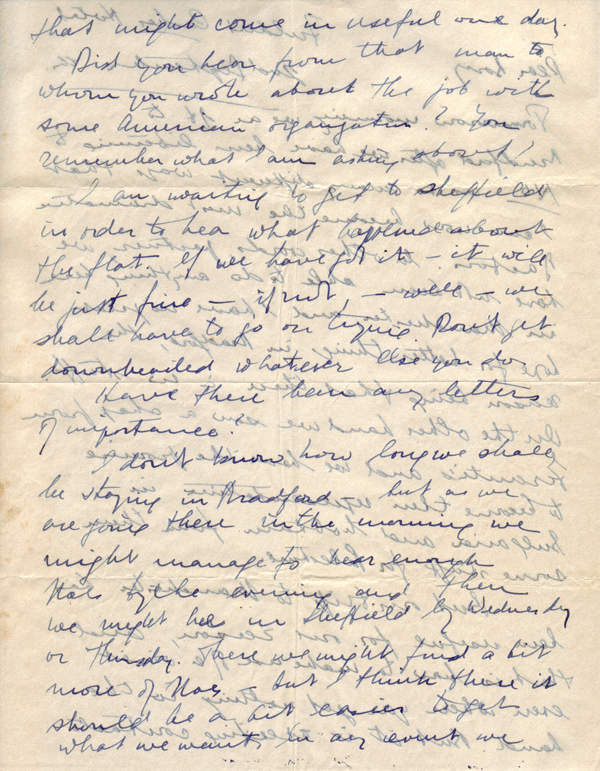 that might come in useful one day.
Did you hear from that man to
whom you wrote about the job with
some American organisation? You
remember what I am asking about!
I am wanting to get to Sheffield
in order to hear what happened about
the flat. If we have got it – it will
be just fine – if not, – well – we
shall have to go on trying. Don't get
downhearted whatever else you do
Have there been any letters
of importance.
I don't know how long we shall
be staying in Bradford but as we
are going there in the morning we
might manage to hear enough
by the evening and then
we might be in Sheffield by Wednesday
or Thursday. There we might find a bit
more of – but I think there it
should be a bit easier to get
what we want, in any event we